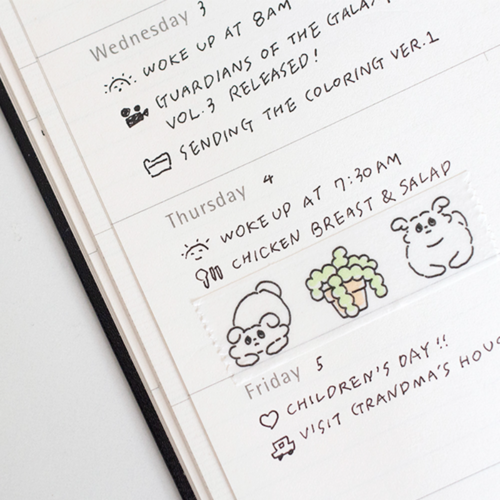 Wednesday 3
WOKE UP AT 8AM
GUARDIANS OF THE GALAXY
VOL.3 RELEASED!
SENDING THE COLORING VER.1
Thursday 4
WOKE UP AT 7:30AM
CHICKEN BREAST & SALAD
Friday 5
CHILDREN'S DAY!!
VISIT GRANDMA'S HOUS